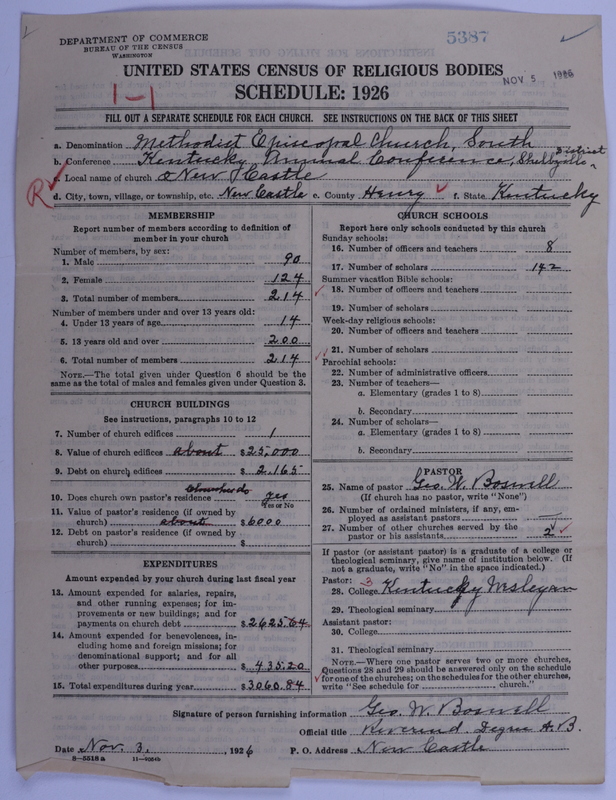 DEPARTMENT OF COMMERCE
BUREAU OF THE CENSUS
WASHINGTON
5387
UNITED STATES CENSUS OF RELIGIOUS BODIES
SCHEDULE: 1926
NOV 5 1926
1-1
FILL OUT A SEPARATE SCHEDULE FOR EACH CHURCH. SEE INSTRUCTIONS ON THE BACK OF THIS SHEET
a. Denomination Methodist Episcopal Church, South
b. Conference Kentucky Annual Conference, Shelbyville District
c. Local name of church New Castle
R
d. City, town, village, or township, etc. New Castle e. County Henry f. State Kentucky
MEMBERSHIP
Report number of members according to definition of
member in your church
Number of members, by sex:
1. Male 90
2. Female 124
3. Total number of members 214
Number of members under and over 13 years old:
4. Under 13 years of age 14
5. 13 years old and over 200
6. Total number of members 214
NOTE.—The total given under Question 6 should be
same as the total of males and females given under Question 3.
CHURCH BUILDINGS
See instructions, paragraphs 10 to 12
7. Number of church edifices 1
8. Value of church edifices about $25,000
9. Debt on church edifices $2,165
10. Does church own pastor's residence yes
Yes or No
11. Value of pastor's residence (if owned by
church) about $6000
12. Debt on pastor's residence (if owned by
church) $
EXPENDITURES
Amount expended by your church during last fiscal year
13. Amount expended for salaries, repairs,
and other running expenses; for im-
provements or new buildings; and for
payments on church debt $2625.64
14. Amount expended for benevolences, in-
cluding home and foreign missions; for
denominational support; and for all
other purposes $435.20
15. Total expenditures during year $3060.84
CHURCH SCHOOLS
Report here only schools conducted by this church
Sunday schools:
16. Number of officers and teachers 8
17. Number of scholars 142
Summer vacation Bible schools:
18. Number of officers and teachers
19. Number of scholars
Week-day religious schools:
20. Number of officers and teachers
21. Number of scholars
Parochial schools:
22. Number of administrative officers
23. Number of teachers—
a. Elementary (grades 1 to 8)
b. Secondary
24. Number of scholars—
a. Elementary (grades 1 to 8)
b. Secondary
PASTOR
25. Name of pastor Geo. W. Boswell
(If church has no pastor, write "None")
26. Number of ordained ministers, if any, em-
ployed as assistant pastors
27. Number of other churches served by the
pastor or his assistants 2
If pastor (or assistant pastor) is a graduate of a college or
theological seminary, give name of institution below. (If
not a graduate, write "No" in the space indicated.)
Pastor: 3
28. College Kentucky Wesleyan
29. Theological seminary
Assistant pastor:
30. College
31. Theological seminary
NOTE.—Where one pastor serves two or more churches,
Questions 28 and 29 should be answered only on the schedule
for one of the churches; on the schedules for the other churches,
write "See schedule for church."
Signature of person furnishing information Geo. W. Boswell
Official title Reverend Degree A.B.
Date Nov. 3, 1926 P. O. Address New Castle
8—5518 a 11—9054b